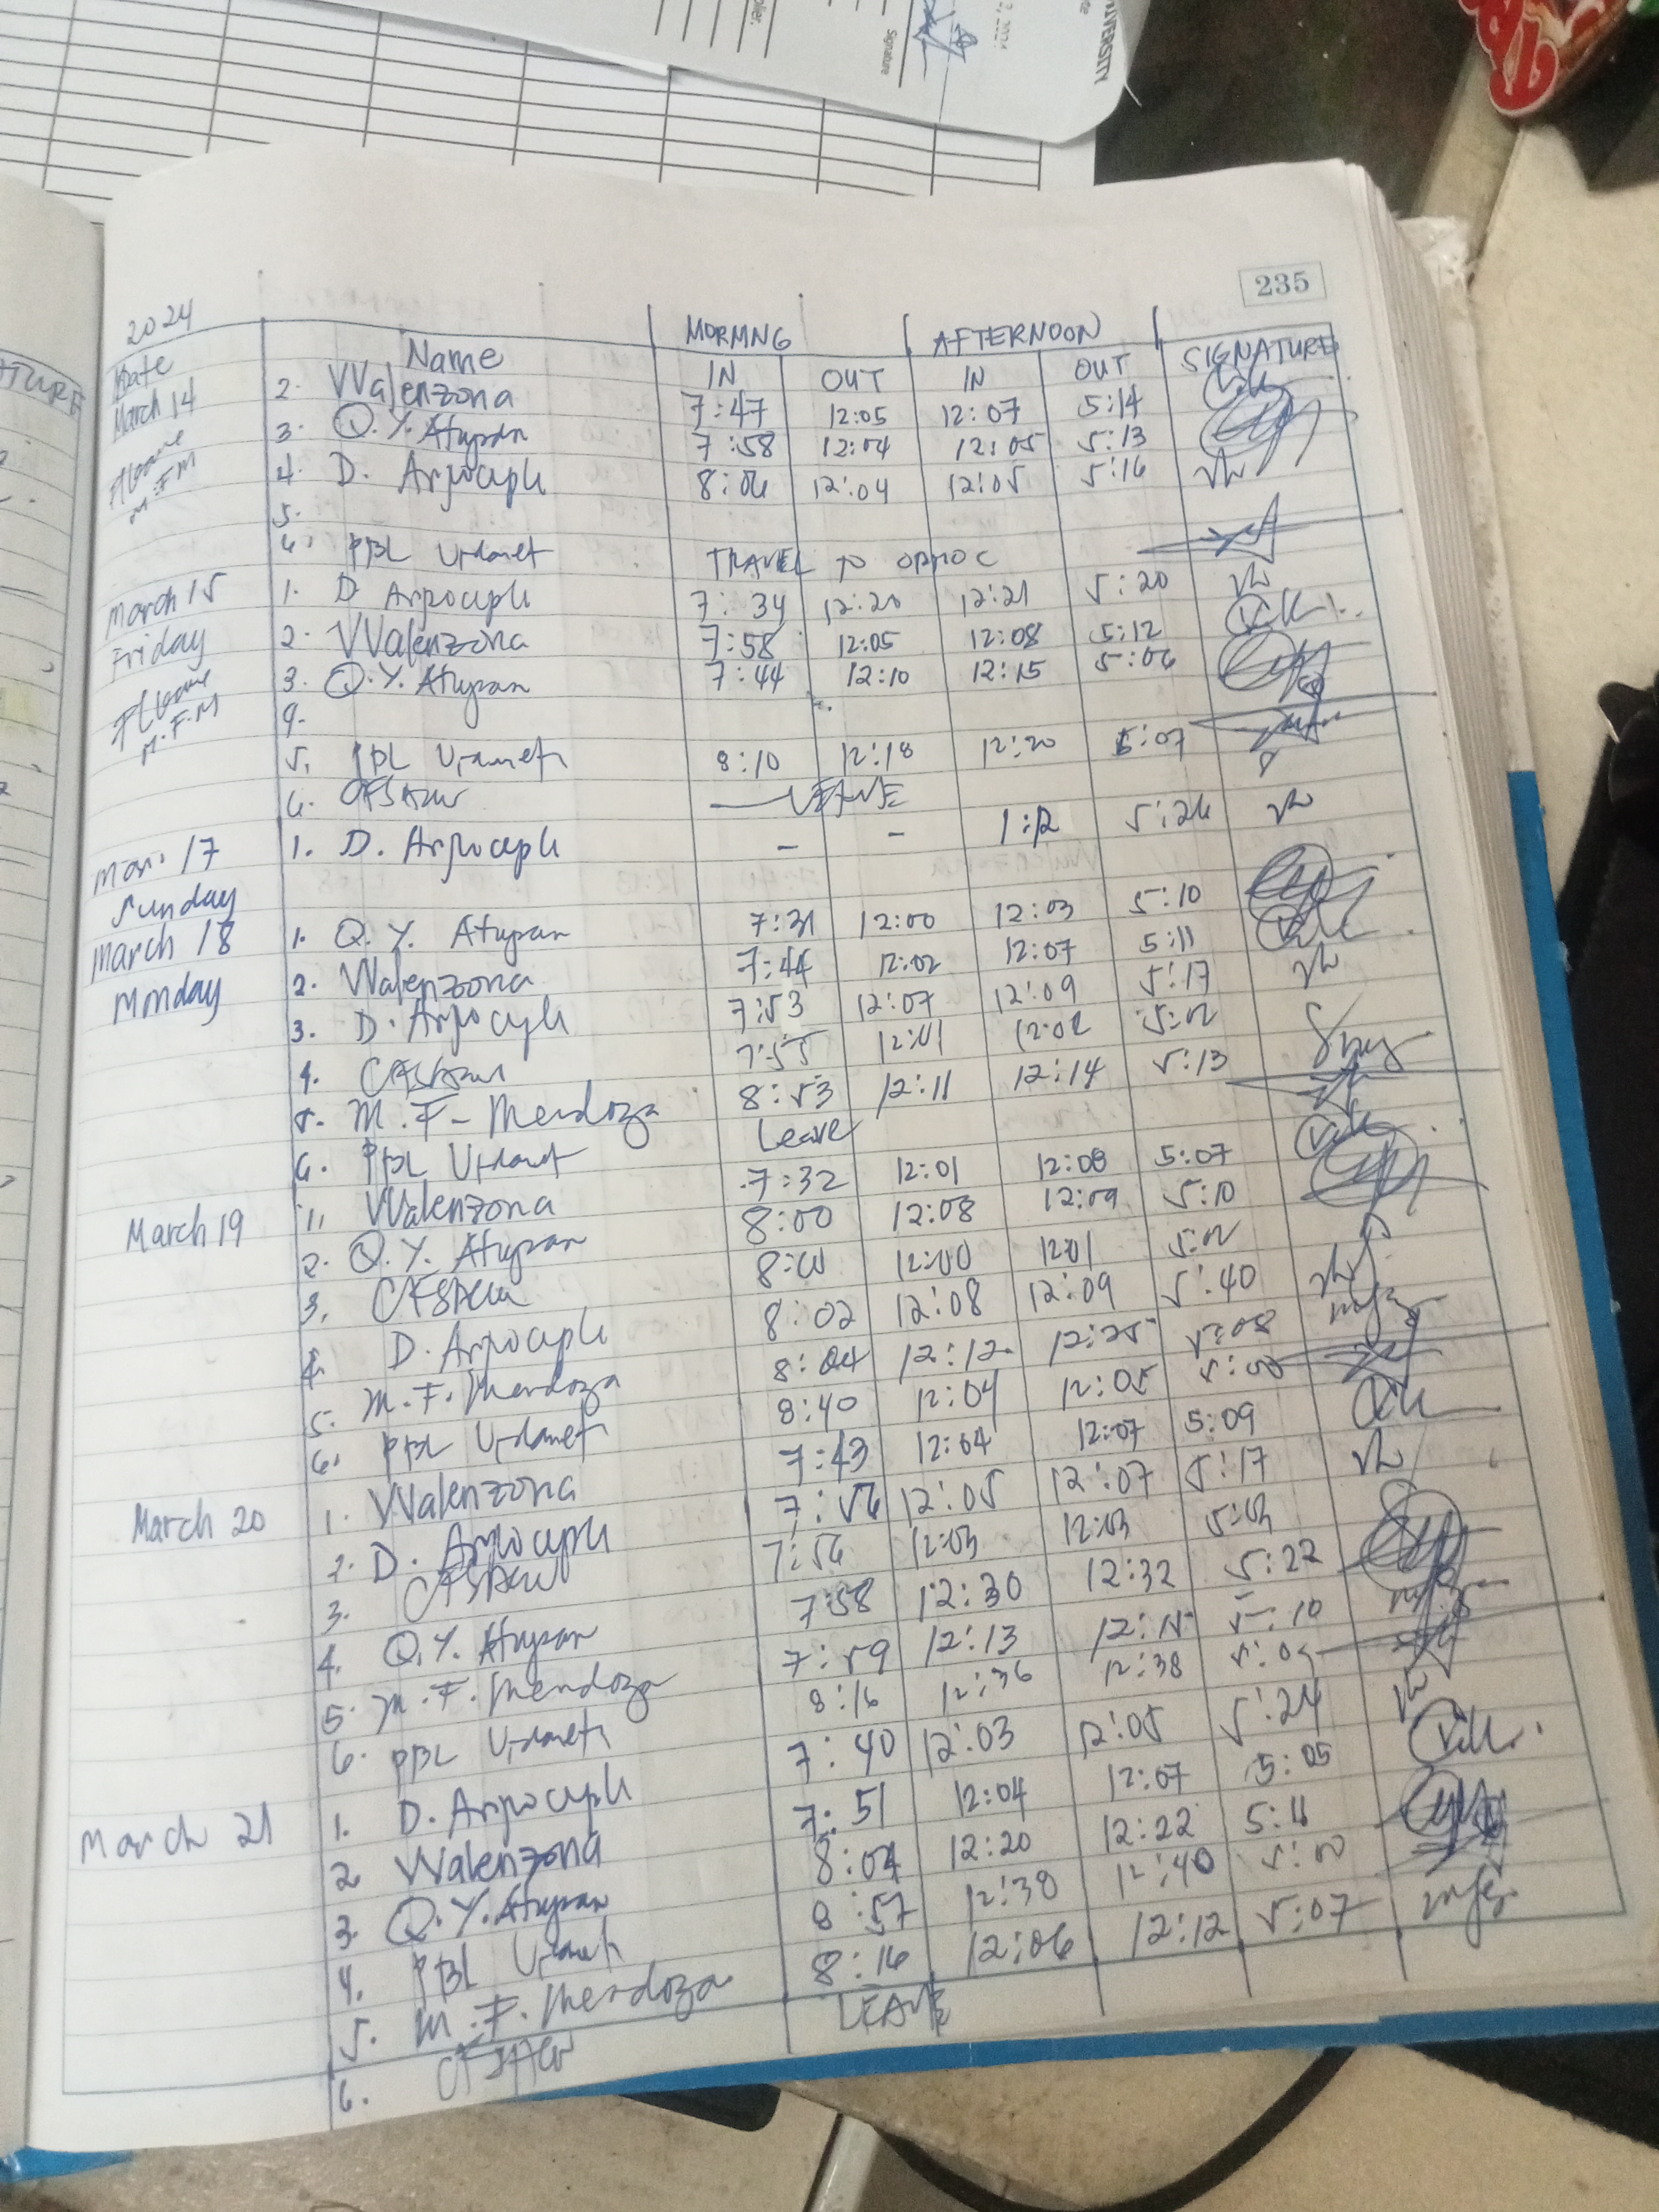 VERSITY
Signature
235
2024
MORNING AFTERNOON
Date Name IN OUT IN OUT SIGNATURE
March 14 2. VValenzona 7:47 12:05 12:07 5:14
3. Q.Y. Atupan 7:58 12:04 12:05 5:13
M.F.M 4. D. Arpocuple 8:06 12:04 12:05 5:16
5.
6. PBL Urdanet TRAVEL TO ORMOC
March 15 1. D Arpocuple 7:34 12:20 12:21 5:20
Friday 2. VValenzona 7:58 12:05 12:08 5:12
3. Q.Y. Atupan 7:44 12:10 12:15 5:06
M.F.M 4.
5. PBL Urdaneta 8:10 12:18 12:20 5:07
6. LEAVE
Mar. 17 1. D. Arpocuple - - 1:12 5:26
Sunday
March 18 1. Q.Y. Atupan 7:31 12:00 12:03 5:10
Monday 2. VValenzona 7:44 12:02 12:07 5:11
3. D. Arpocuple 7:53 12:07 12:09 5:17
4. 7:55 12:01 12:02 5:02
5. M.F. Mendoza 8:53 12:11 12:14 5:13
6. PBL Urdanet Leave
March 19 1. VValenzona 7:32 12:01 12:08 5:07
2. Q.Y. Atupan 8:00 12:08 12:09 5:10
3. 12:00 12:01 5:02
4. D. Arpocuple 8:02 12:08 12:09 5:40
5. M.F. Mendoza 8:04 12:12 12:25 5:08
6. PBL Urdaneta 8:40 12:04 12:05 5:00
March 20 1. VValenzona 7:43 12:04 12:07 5:09
2. D. Arpocuple 7:56 12:05 12:07 5:17
3. 7:56 12:03 12:03 5:03
4. Q.Y. Atupan 7:58 12:30 12:32 5:22
5. M.F. Mendoza 7:59 12:13 12:15 5:10
6. PBL Urdaneta 8:16 12:36 12:38
March 21 1. D. Arpocuple 7:40 12:03 12:05 5:24
2 VValenzona 7:51 12:04 12:07 5:05
3. Q.Y. Atupan 8:04 12:20 12:22 5:11
4. PBL 8:57 12:38 12:40 5:00
5. M.F. Mendoza 8:16 12:06 12:12 5:07
6. LEAVE